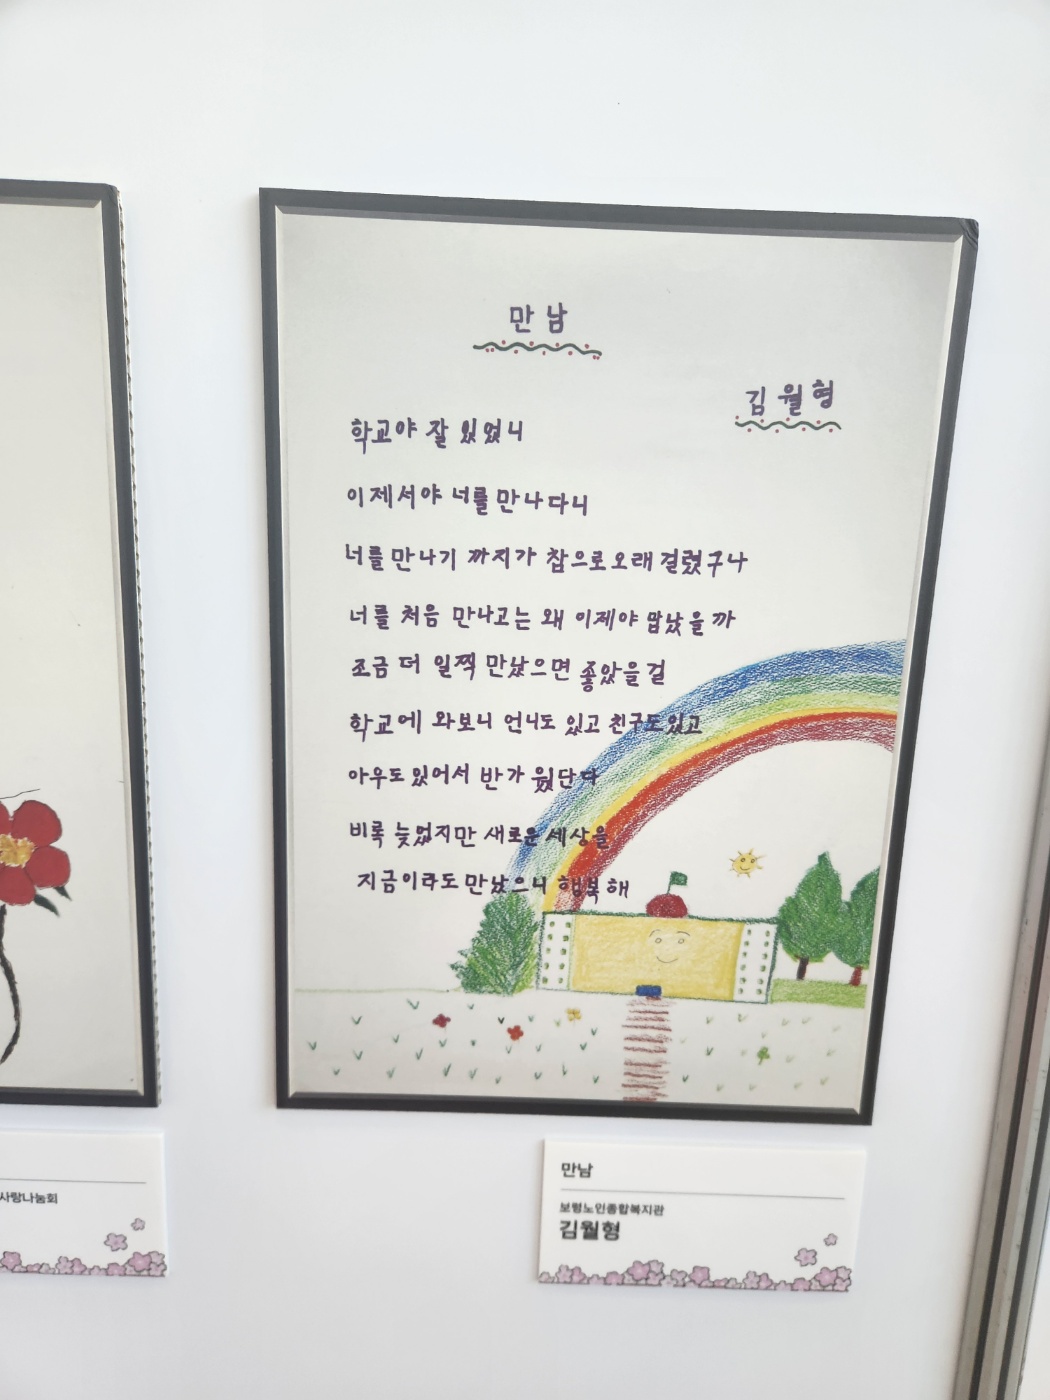 만남
김월형
학교야 잘 있었니
이제서야 너를 만나다니
너를 만나기 까지가 참으로 오래 걸렸구나
너를 처음 만나고는 왜 이제야 맘났을까
조금 더 일찍 만났으면 좋았을걸
학교에 와보니 언니도 있고 친구도 있고
아우도 있어서 반가 웠단다
비록 늦었지만 새로운 세상을
지금이라도 만났으니 행복해
사랑나눔회
만남
보령노인종합복지관
김월형